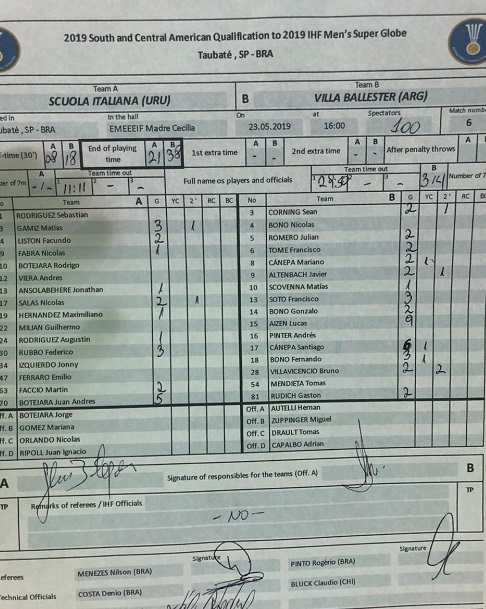 2019 South and Central American Qualification to 2019 IHF Men's Super Globe
Taubaté, SP - BRA
Team A
SCUOLA ITALIANA (URU)
B
Team B
VILLA BALLESTER (ARG)
In the hall
On
at
Spectators
SP - BRA
EMEEEIF Madre Cecilia
23.05.2019
16:00
100
6
(30')
A B
08 18
End of playing time
A B
21 38
1st extra time
A B
- -
2nd extra time
A B
- -
After penalty throws
A
Team time out
1 11:11 2 - 3 -
Full name os players and officials
Team time out
- 3 -
B
3/4
Team A G YC 2' RC BC
No Team B G YC 2' RC
RODRIGUEZ Sebastian
GAMIZ Matias 3 1
LISTON Facundo 2
FABRA Nicolas 1
10 BOTEJARA Rodrigo
12 VIERA Andres
13 ANSOLABEHERE Jonathan 1
17 SALAS Nicolas 2 1
19 HERNANDEZ Maximiliano 1
22 MILIAN Guillermo
24 RODRIGUEZ Augustin 1
30 RUBBO Federico 3
34 IZQUIERDO Jonny
47 FERRARO Emilio
63 FACCIO Martin 2
70 BOTEJARA Juan Andres 5
Off. A BOTEJARA Jorge
Off. B GOMEZ Mariana
Off. C ORLANDO Nicolas
Off. D RIPOLL Juan Ignacio
3 CORNING Sean 2 1
4 BONO Nicolas
5 ROMERO Julian 2
6 TOME Francisco 2
8 CÁNEPA Mariano 2 1
9 ALTENBACH Javier 2 1
10 SCOVENNA Matías 1
13 SOTO Francisco 3
14 BONO Gonzalo 2
15 AIZEN Lucas 9
16 PINTER Andrés
17 CÁNEPA Santiago 6 1
18 BONO Fernando 3 1
28 VILLAVICENCIO Bruno 2 2
54 MENDIETA Tomas
81 RUDICH Gaston 2
Off. A AUTELLI Hernan
Off. B ZUPPINGER Miguel
Off. C DRAULT Tomas
Off. D CAPALBO Adrian
A
Signature of responsibles for the teams (Off. A)
B
TP
Remarks of referees / IHF Officials
TP
- NO -
Signature
Signature
Referees
MENEZES Nilson (BRA)
PINTO Rogério (BRA)
Technical Officials
COSTA Denio (BRA)
BLUCK Claudio (CHI)